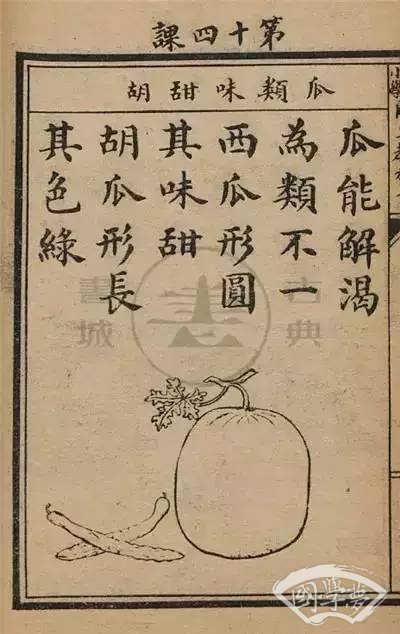 第十四課
瓜類味甜胡
瓜能解渴
為類不一
西瓜形圓
其味甜
胡瓜形長
其色綠
古典書城
國學夢